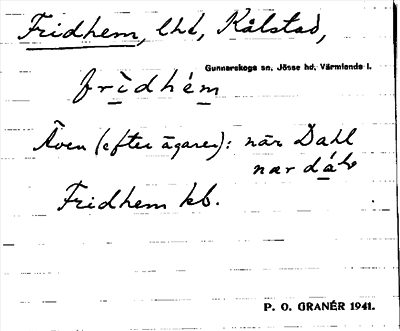 Fridhem, lht, Kålstad,
Gunnarskogs sn, Jösse hd, Värmlands l.
frìdhém
Även (efter ägaren): när Dahl
nar
Fridhem kb.
P. O. GRANÉR 1941.